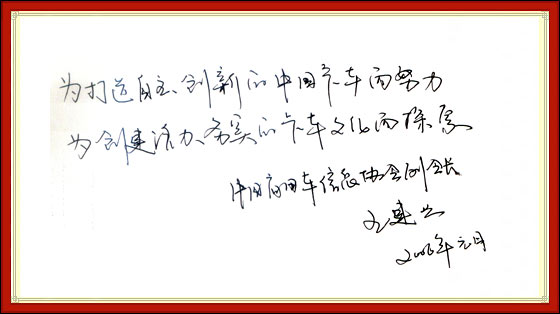 为打造自主、创新的中国卡车而努力
为创建活力、务实的卡车文化而
中国商用车信息协会副会长
2006年元月